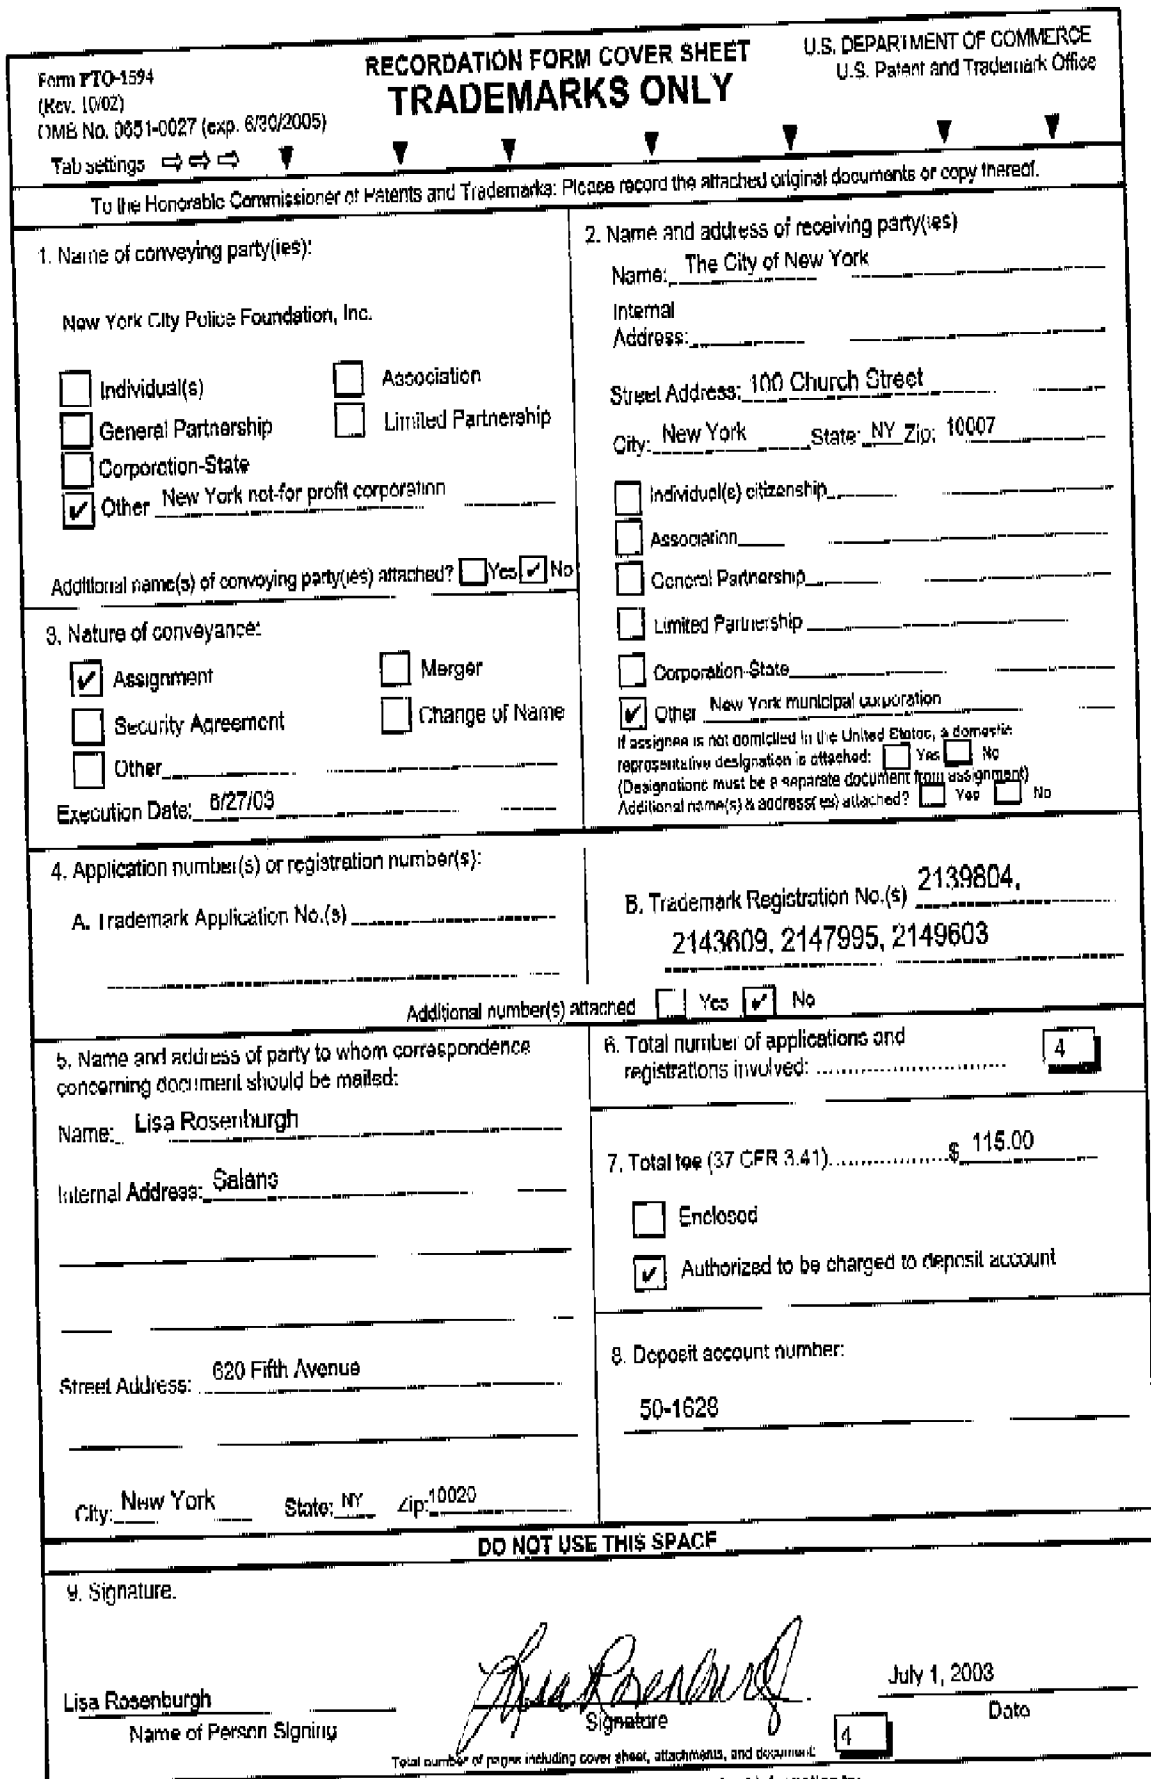 Form PTO-1594
(Rev. 10/02)
OMB No. 0651-0027 (exp. 6/30/2005)
Tab settings ⇨⇨⇨
RECORDATION FORM COVER SHEET
TRADEMARKS ONLY
U.S. DEPARTMENT OF COMMERCE
U.S. Patent and Trademark Office
To the Honorable Commissioner of Patents and Trademarks: Please record the attached original documents or copy thereof.
1. Name of conveying party(ies):
New York City Police Foundation, Inc.
Individual(s)
Association
General Partnership
Limited Partnership
Corporation-State
✔ Other New York not-for profit corporation
Additional name(s) of conveying party(ies) attached? Yes ✔ No
2. Name and address of receiving party(ies)
Name: The City of New York
Internal
Address:
Street Address: 100 Church Street
City: New York State: NY Zip: 10007
Individual(s) citizenship
Association
General Partnership
Limited Partnership
Corporation-State
✔ Other New York municipal corporation
If assignee is not domiciled in the United States, a domestic
representative designation is attached: Yes No
(Designations must be a separate document from assignment)
Additional name(s) & address(es) attached? Yes No
3. Nature of conveyance:
✔ Assignment
Merger
Security Agreement
Change of Name
Other
Execution Date: 6/27/03
4. Application number(s) or registration number(s):
A. Trademark Application No.(s)
B. Trademark Registration No.(s) 2139804,
2143609, 2147995, 2149603
Additional number(s) attached Yes ✔ No
5. Name and address of party to whom correspondence
concerning document should be mailed:
Name: Lisa Rosenburgh
Internal Address: Salans
Street Address: 620 Fifth Avenue
City: New York State: NY Zip: 10020
6. Total number of applications and
registrations involved: 4
7. Total fee (37 CFR 3.41) $ 115.00
Enclosed
✔ Authorized to be charged to deposit account
8. Deposit account number:
50-1628
DO NOT USE THIS SPACE
9. Signature.
Lisa Rosenburgh
Name of Person Signing
Lisa Rosenburgh
Signature
July 1, 2003
Date
Total number of pages including cover sheet, attachments, and document: 4